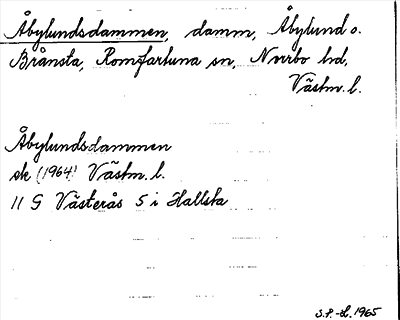 Åbylundsdammen, damm, Åbylund o.
Brånsta, Romfartuna sn, Norrbo hd,
Västm. l.
Åbylundsdammen
ek (1964) Västm. l.
11 G Västerås 5 i Hallsta
S.P.-L. 1965